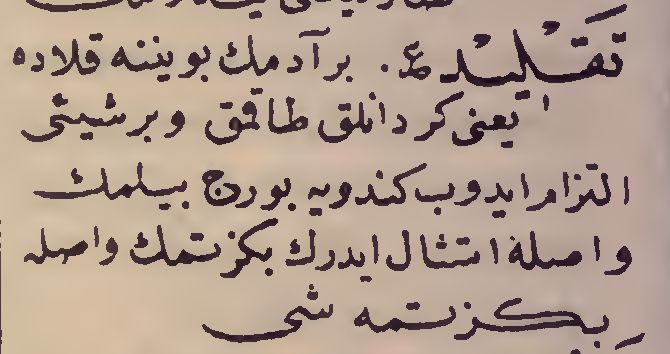 تقليد ع. بر آدمك بويننه قلاده
يعنى كردانلق طاقمق وبر شيئى
التزام ايدوب كندويه بورج بيلمك
واصلة امتثال ايدرك بكزتمك واصله
بكزتمه شى